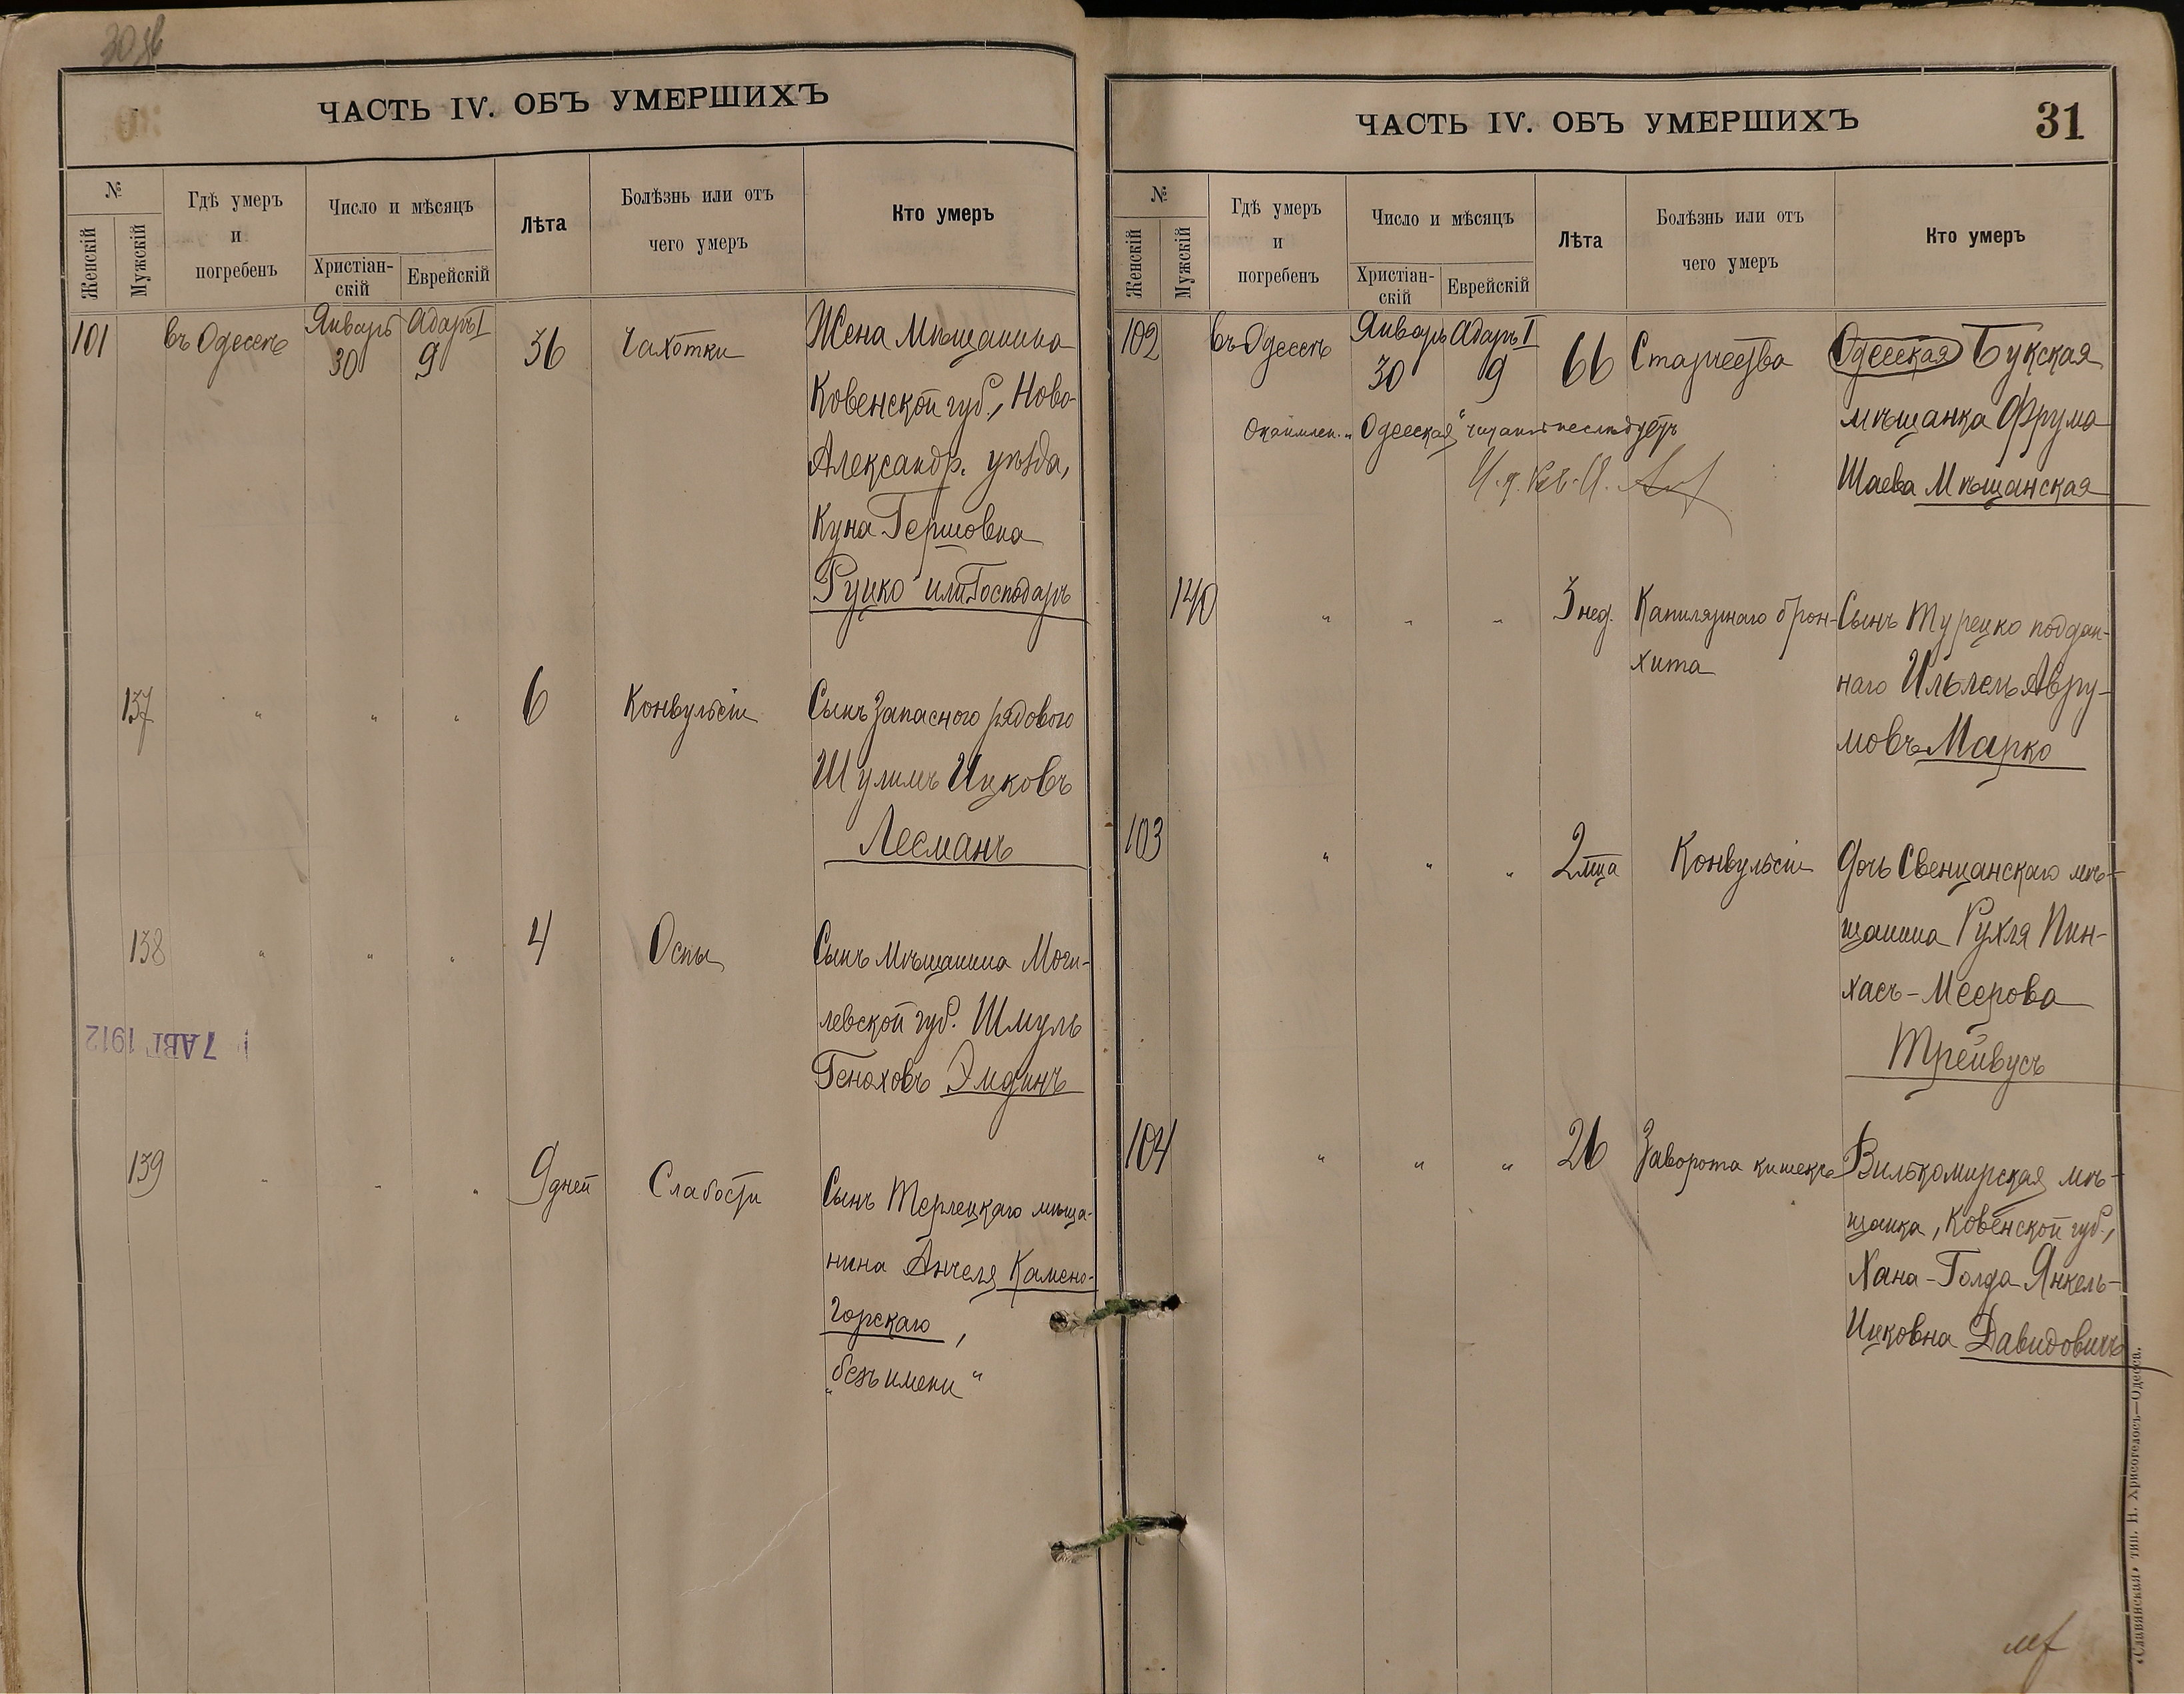 30 об
ЧАСТЬ IV. ОБЪ УМЕРШИХЪ
№
Женскій
Мужскій
Гдѣ умеръ
и
погребенъ
Число и мѣсяцъ
Христіан-
скій
Еврейскій
Лѣта
Болѣзнь или отъ
чего умеръ
Кто умеръ
101 въ Одессѣ Январь 30 Адаръ I 9 36 Чахотки Жена Мѣщанина
Ковенской губ., Ново-
Александр. уѣзда,
Куна Гершовна
Руцко или Господарь
137 " " " 6 Конвульсіи Сынъ Запасного рядового
Шулимъ Ицковъ
Лесманъ
138 " " " 4 Оспы Сынъ Мѣщанина Моги-
левской губ. Шмуль
Геноховъ Эмдинъ
7 АВГ 1912
139 " " " 9 дней Слабости Сынъ Терлецкаго мѣща-
нина Анчеля Камено-
горскаго,
"безъ имени"
ЧАСТЬ IV. ОБЪ УМЕРШИХЪ
31
№
Женскій
Мужскій
Гдѣ умеръ
и
погребенъ
Число и мѣсяцъ
Христіан-
скій
Еврейскій
Лѣта
Болѣзнь или отъ
чего умеръ
Кто умеръ
102 въ Одессѣ Январь 30 Адаръ I 9 66 Старчества Одесская Букская
мѣщанка Фрума
Шаева Мѣщанская
Окаймлен. "Одесская" читать неслѣдуетъ
140 " " " 3 нед. Капилярнаго брон-
хита
Сынъ Турецко поддан-
наго Ильлемъ Авру-
мовъ Марко
103 " " " 2 мца Конвульсіи Дочь Свенцанскаго мѣ-
щанина Рухля Пин-
хасъ-Меерова
Трейвусъ
104 " " " 26 Заворота кишекъ Вилькомирская мѣ-
щанка, Ковенской губ.,
Хана-Голда Янкель-
Ицковна Давидовичъ
«Славянская» тип. Н. Хрисогелосъ—Одесса.